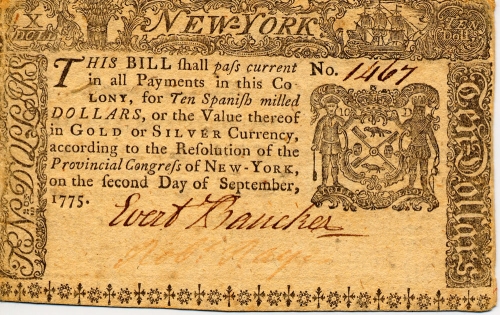 X
DOLL
NEW-YORK
TEN
DOLL
THIS BILL ſhall paſs current
in all Payments in this Co-
LONY, for Ten Spaniſh milled
DOLLARS, or the Value thereof
in GOLD or SILVER Currency,
according to the Reſolution of the
Provincial Congreſs of NEW-YORK,
on the ſecond Day of September,
1775.
No. 1467
Evert Bancker
Ten Dollars